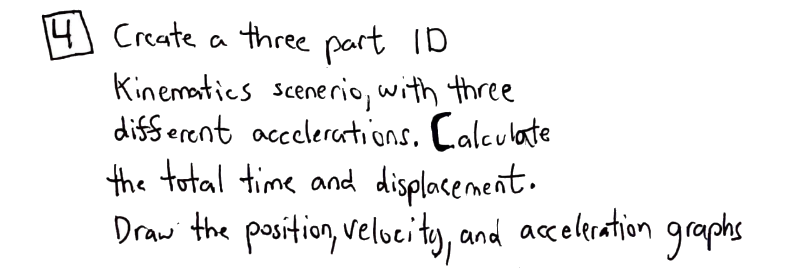 4 Create a three part 1D
Kinematics scenerio, with three
different accelerations. Calculate
the total time and displacement.
Draw the position, velocity, and acceleration graphs